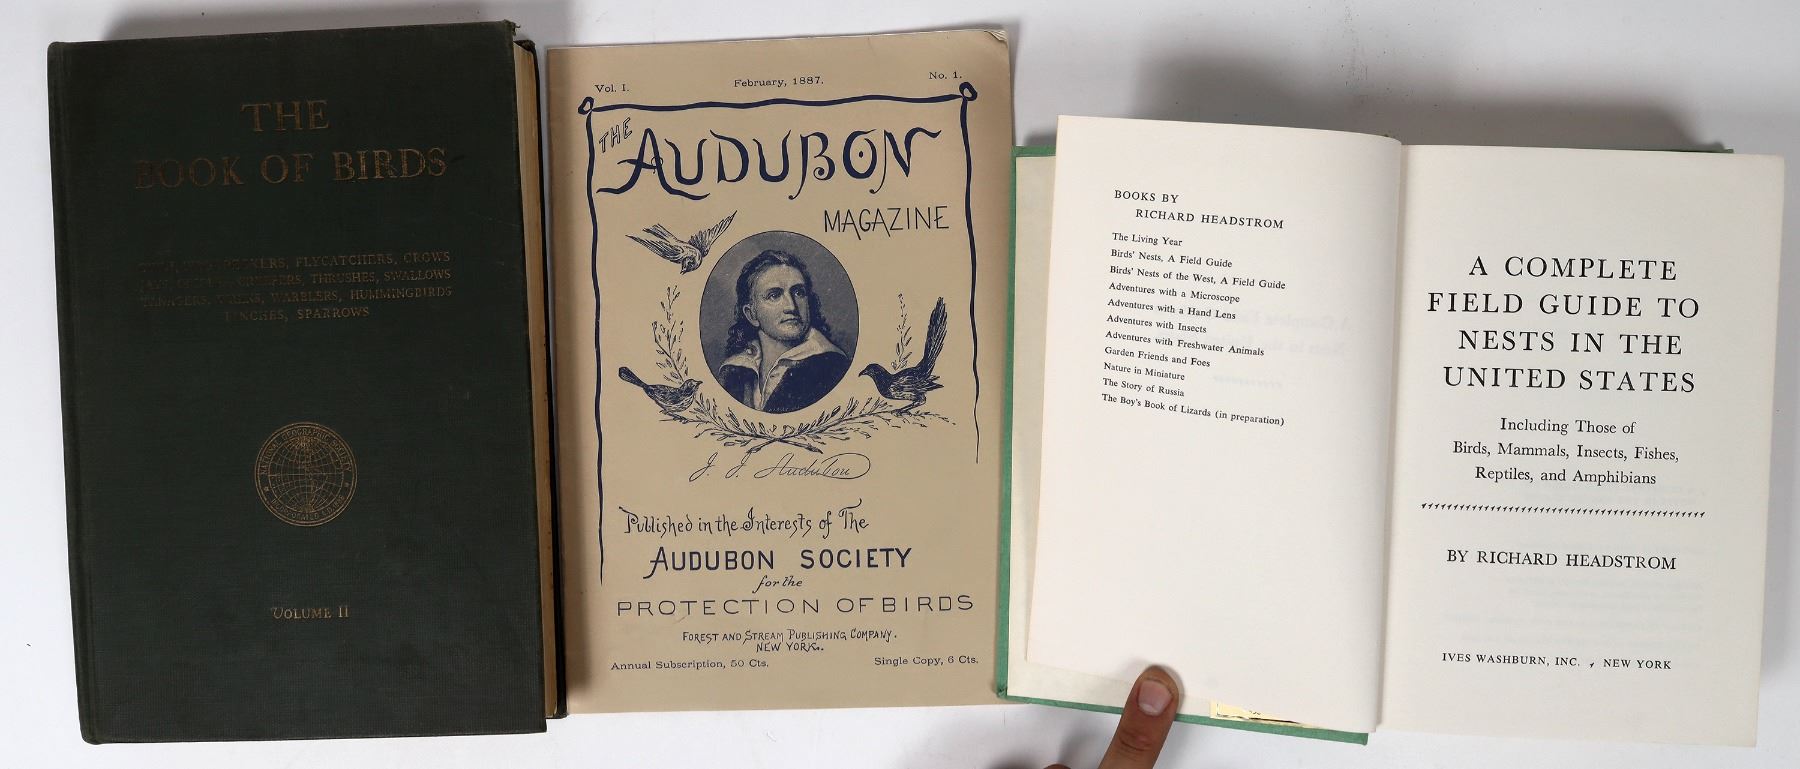 THE
BOOK OF BIRDS
OWLS, WOODPECKERS, FLYCATCHERS, CROWS
JAYS, CREEPERS, THRUSHES, SWALLOWS
TANAGERS, WRENS, WARBLERS, HUMMINGBIRDS
FINCHES, SPARROWS
NATIONAL GEOGRAPHIC SOCIETY
INCORPORATED A.D. 1888
VOLUME II
Vol. I.
February, 1887.
No. 1.
THE
AUDUBON
MAGAZINE
J. J. Audubon
Published in the Interests of The
AUDUBON SOCIETY
for the
PROTECTION OF BIRDS
FOREST AND STREAM PUBLISHING COMPANY.
NEW YORK.
Annual Subscription, 50 Cts.
Single Copy, 6 Cts.
BOOKS BY
RICHARD HEADSTROM
The Living Year
Birds' Nests, A Field Guide
Birds' Nests of the West, A Field Guide
Adventures with a Microscope
Adventures with a Hand Lens
Adventures with Insects
Adventures with Freshwater Animals
Garden Friends and Foes
Nature in Miniature
The Story of Russia
The Boy's Book of Lizards (in preparation)
A COMPLETE
FIELD GUIDE TO
NESTS IN THE
UNITED STATES
Including Those of
Birds, Mammals, Insects, Fishes,
Reptiles, and Amphibians
BY RICHARD HEADSTROM
IVES WASHBURN, INC. , NEW YORK